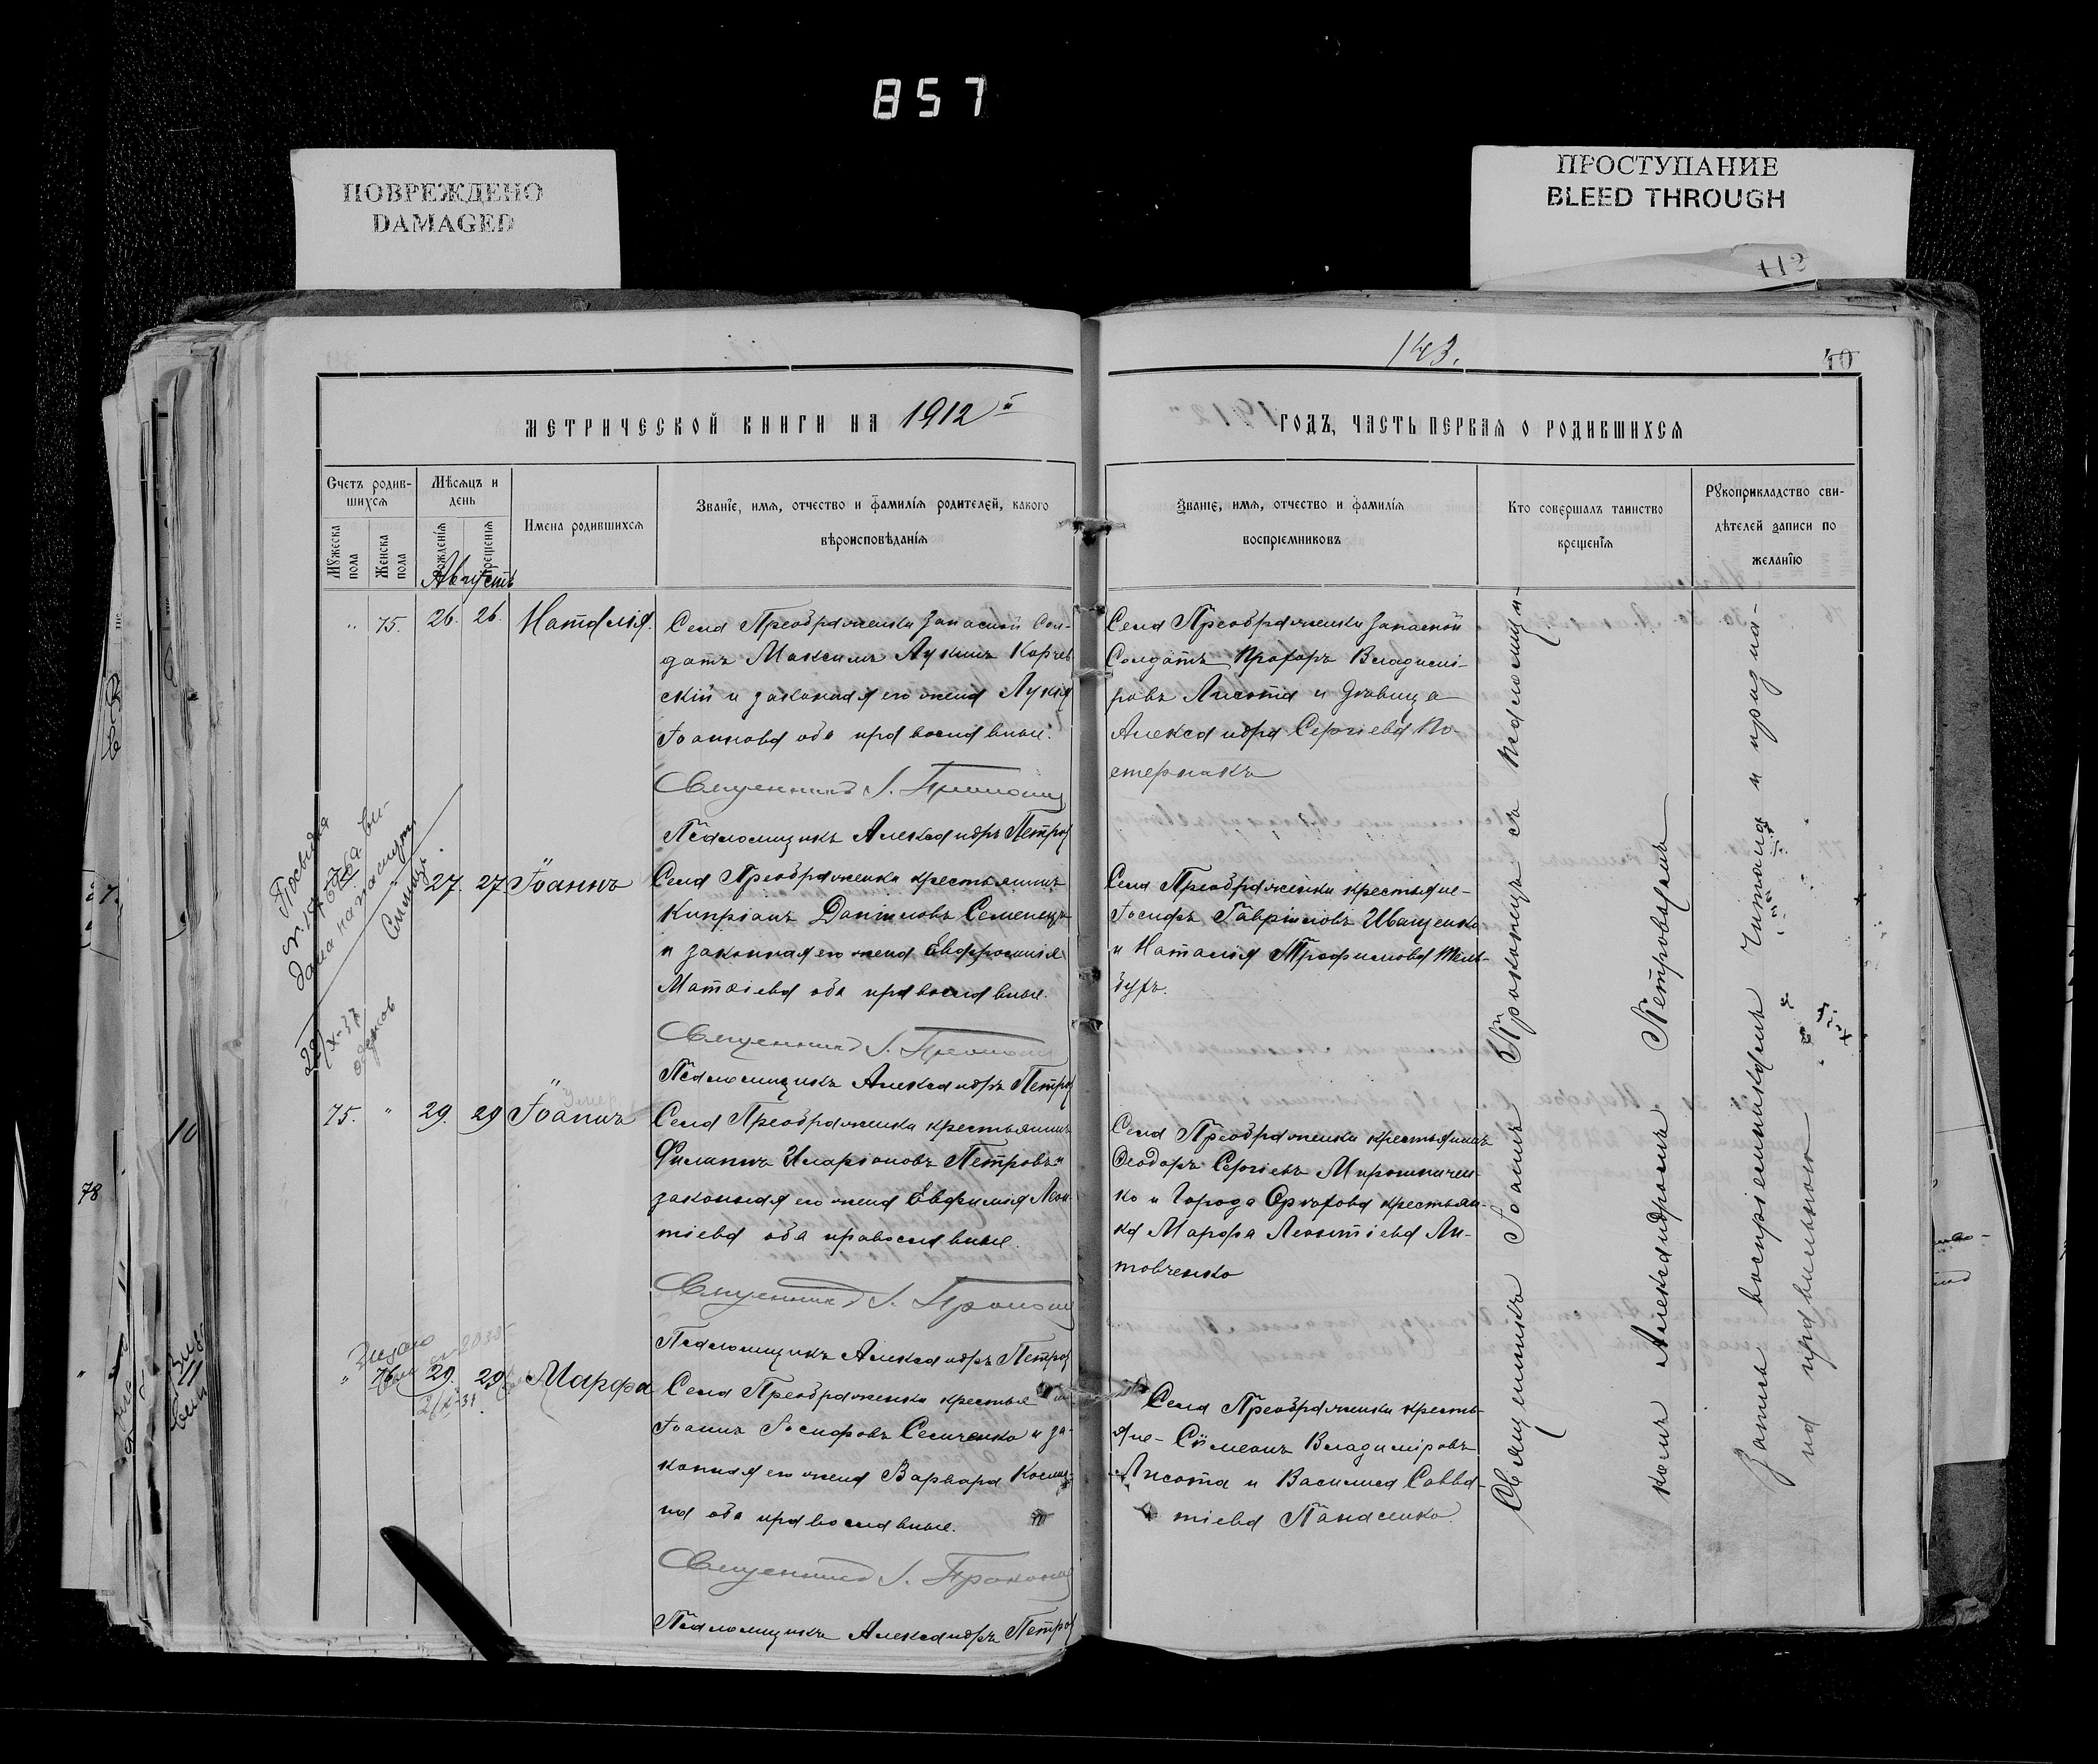 857
ПОВРЕЖДЕНО
DAMAGED
ПРОСТУПАНИЕ
BLEED THROUGH
112
143.
40
МЕТРИЧЕСКОЙ КНИГИ НА 1912 й
ГОДЪ, ЧАСТЬ ПЕРВАЯ О РОДИВШИХСЯ
Счетъ родив-
шихся
Мѣсяцъ и
день
Мужеска
пола
Женска
пола
Рожденія
Крещенія
Имена родившихся
Званіе, имя, отчество и фамилія родителей, какого
вѣроисповѣданія
Званіе, имя, отчество и фамилія
воспріемниковъ
Кто совершалъ таинство
крещенія
Рукоприкладство сви-
дѣтелей записи по
желанію
Августъ
" 75. 26. 26. Наталія.
Села Преображенки Запасной Сол-
датъ Максимъ Лукинъ Корчев
скій и законная его жена Лукія
Іоаннова оба православные.
Священникъ І. Прокопец
Псаломщикъ Александръ Петров
Села Преображенки Запасной
Солдатъ Прохоръ Владимі-
ровъ Лисота и дѣвица
Александра Сергіева По-
стернакъ
27. 27 Іоаннъ
Села Преображенки крестьянинъ
Кипріанъ Даніиловъ Семенецъ
и законная его жена Евфросинія
Матѳіева оба православные.
Священникъ І. Прокопец
Псаломщикъ Александръ Петров
Села Преображенки крестьяне-
Іосифъ Гавріиловъ Иващенко
и Наталія Трофимова Тель-
бухъ.
75. " 29. 29 Іоаннъ
Умер
Села Преображенки крестьянинъ
Филиппъ Иларіоновъ Петровъ и
законная его жена Евфимія Леон-
тіева оба православные.
Священникъ І. Прокопец
Псаломщикъ Александръ Петров
Села Преображенки крестьянинъ
Ѳеодоръ Сергіевъ Мирошничен-
ко и Города Орѣхова крестьян-
ка Марфа Леонтіева Ли-
товченко
" 76 29. 29 Марфа
Села Преображенки крестья
Іоаннъ Іосифовъ Семченко и за-
конная его жена Варвара Косми-
на оба православные.
Священникъ І. Прокопец
Псаломщикъ Александръ Петров
Села Преображенки кресть-
яне - Сѵмеонъ Владиміровъ
Лисота и Василиса Савва-
тіева Панасенко.
Священникъ Іоаннъ Прокопецъ съ псаломщи-
комъ Александромъ Петроваромъ
Запись воспріемникамъ читана и призна-
на правильною
78
10